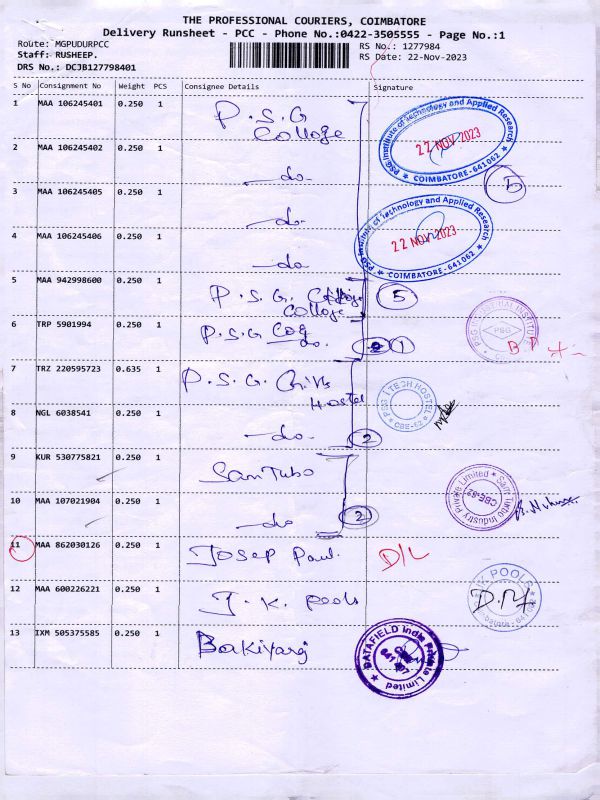 THE PROFESSIONAL COURIERS, COIMBATORE
Delivery Runsheet - PCC - Phone No.:0422-3505555 - Page No.:1
Route: MGPUDURPCC
Staff: RUSHEEP.
DRS No.: DCJB127798401
RS No.: 1277984
RS Date: 22-Nov-2023
S No Consignment No Weight PCS Consignee Details Signature
1 MAA 106245401 0.250 1 P.S.G College
PSG Institute of Technology and Applied Research
22 NOV 2023
COIMBATORE-641 062
2 MAA 106245402 0.250 1 -do-
5
3 MAA 106245405 0.250 1 -do-
PSG Institute of Technology and Applied Research
22 NOV 2023
COIMBATORE-641 062
4 MAA 106245406 0.250 1 -do-
5 MAA 942998600 0.250 1 P.S.G. College
5
6 TRP 5901994 0.250 1 P.S.G do.
1
PSG INDUSTRIAL INSTITUTE
PSG
7 TRZ 220595723 0.635 1 P.S.G. Girls Hostel
PSG iTECH HOSTEL
CBE-62
8 NGL 6038541 0.250 1 -do-
2
9 KUR 530775821 0.250 1 Sam Tubo
Sam Turbo Industry Private Limited
CBE-62
10 MAA 107021904 0.250 1 -do-
2
11 MAA 862030126 0.250 1 Josep Paul.
D/L
12 MAA 600226221 0.250 1 J.K. Pools
JK POOLS
13 IXM 505375585 0.250 1 Bakiyaraj
DATAFIELD India Private Limited